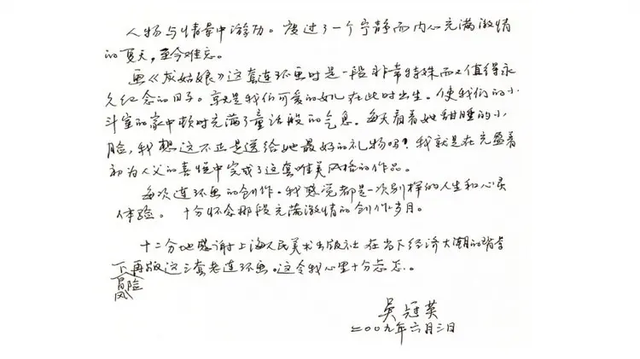 人物与情景中游动。度过了一个宁静而内心充满激情
的夏天,至今难忘。
画《灰姑娘》这套连环画时是一段非常特殊而又值得永
久纪念的日子。就是我们可爱的女儿在此时出生。使我们的小
斗室的家中顿时充满了童话般的气息。每天看着她甜睡的小
脸,我想这不正是送给她最好的礼物吗?我就是在充盈着
初为人父的喜悦中完成了这套唯美风格的作品。
每次连环画的创作。我感觉都是一次别样的人生和心灵
体验。十分怀念那段充满激情的创作岁月。
十二分地感谢上海人民美术出版社在当下经济大潮的背景
下冒风险再版这三套老连环画。这令我心里十分忐忑。
吴冠英
二00九年六月三日